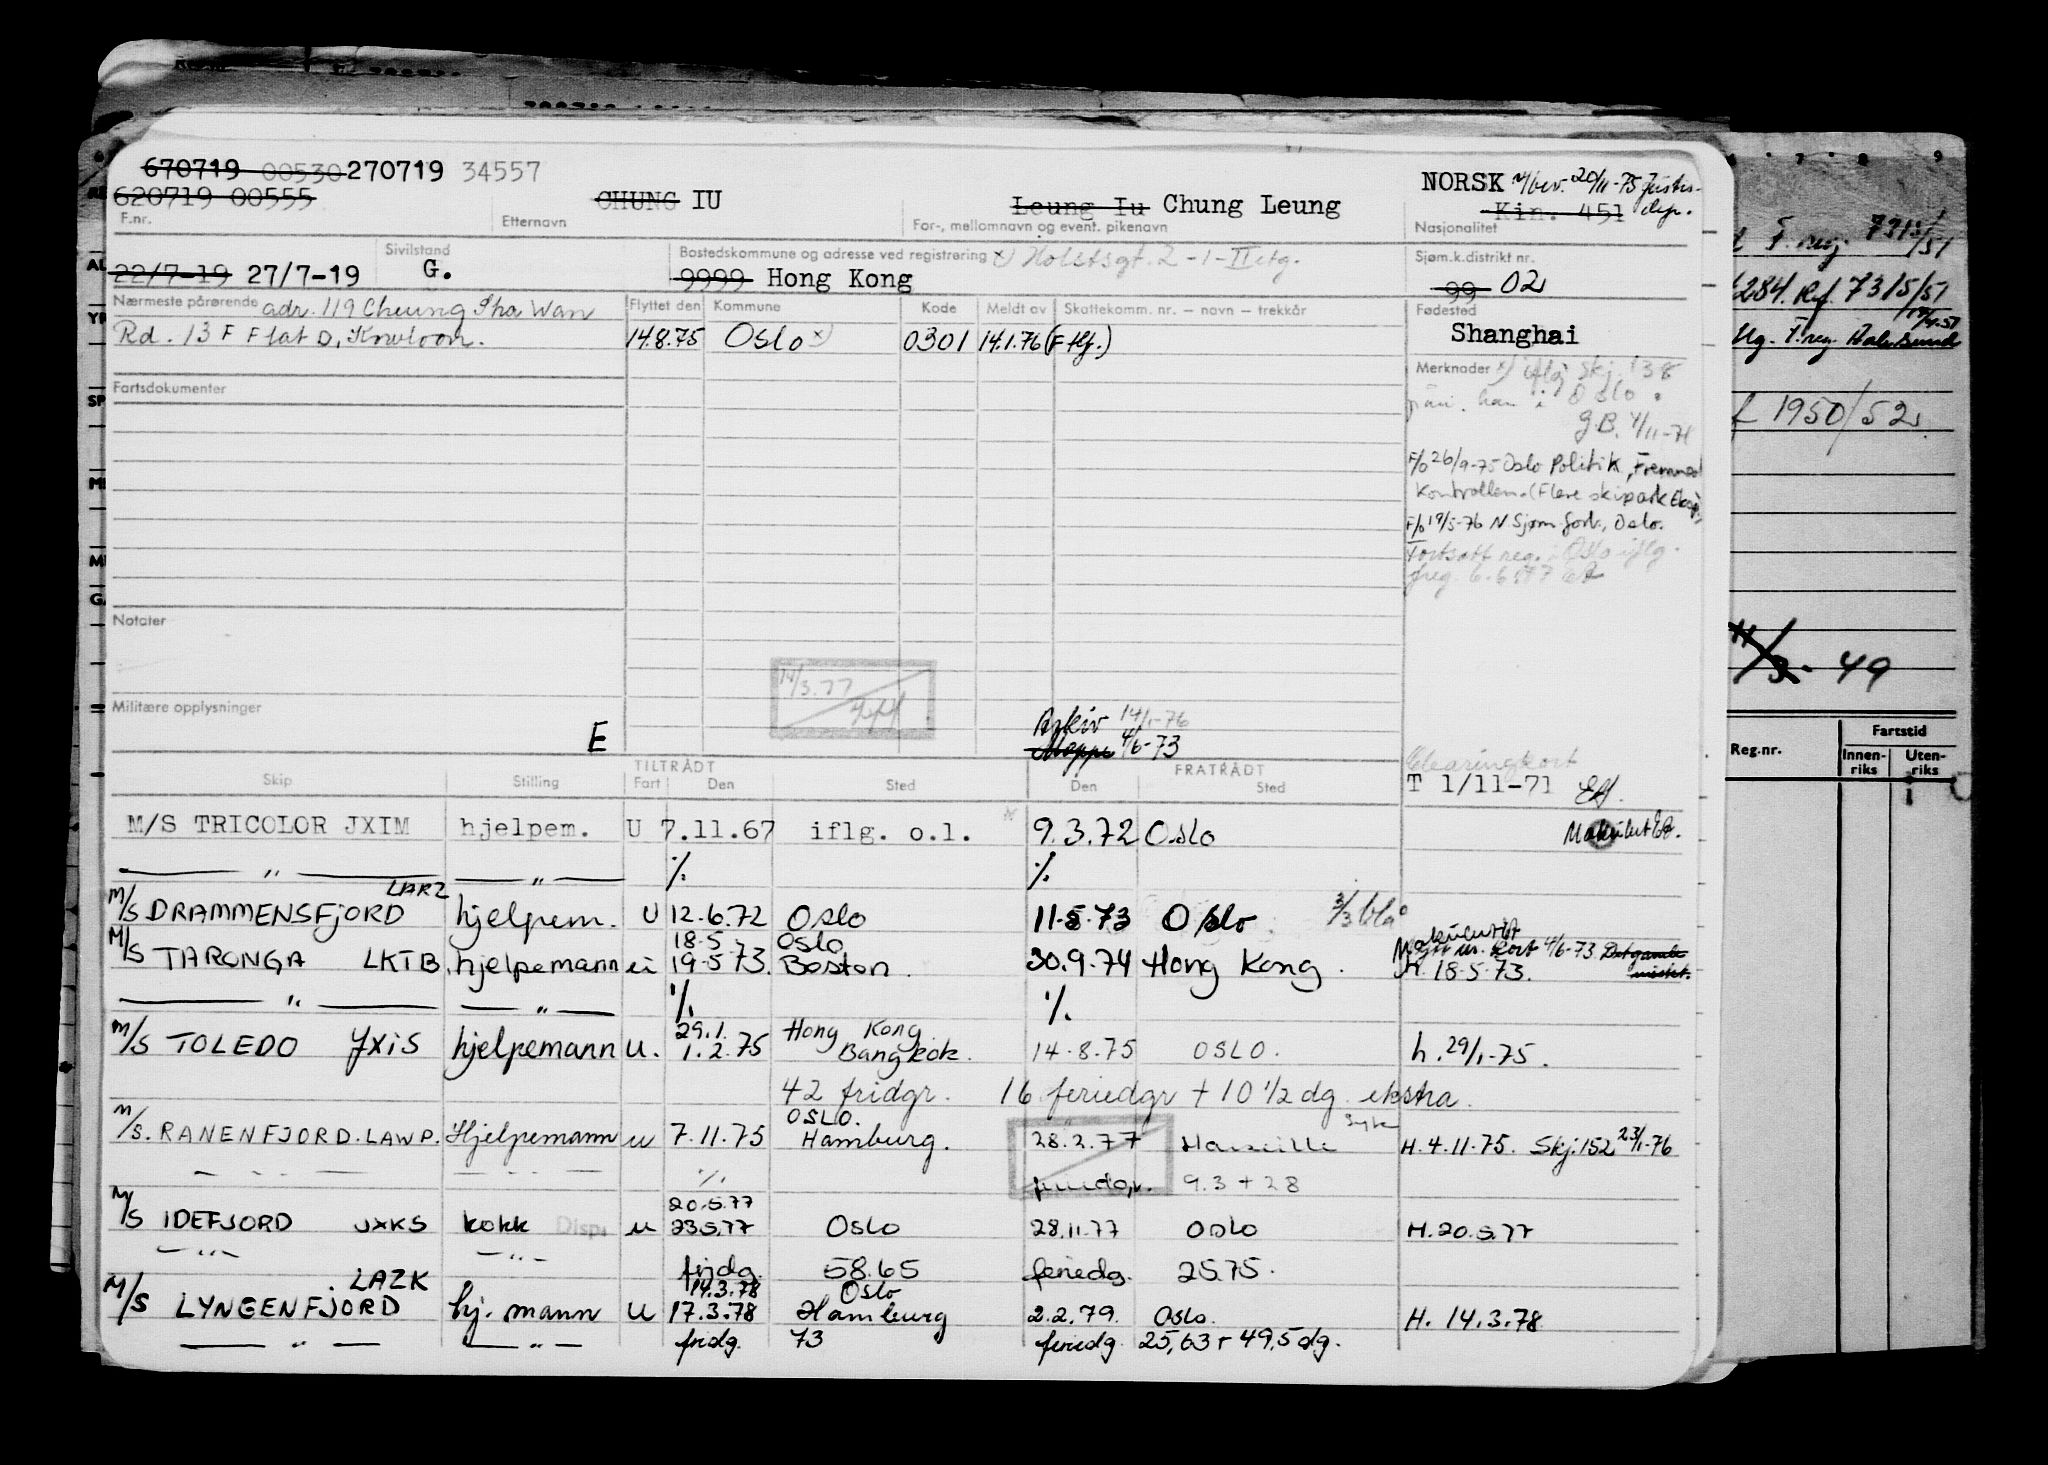 670719 00530 270719 34557
620719 00555
CHUNG IU
Leung Iu Chung Leung
NORSK 20/11-75 Justis-
Kin. 451 dep.
F.nr. Etternavn For-, mellomnavn og event. pikenavn Nasjonalitet
Sivilstand Bostedskommune og adresse ved registrering x) Holstsgt. 2-1-II etg. Sjøm.k.distrikt nr.
22/7-19 27/7-19 G. 9999 Hong Kong 99 02
Nærmeste pårørende adr. 119 Cheung Sha Wan Flyttet den Kommune Kode Meldt av Skattekomm. nr. — navn — trekkår Fødested
Rd. 13 F Flat D, Kowloon. 14.8.75 Oslo x) 0301 14.1.76 (F flj.) Shanghai
Fartsdokumenter
Merknader x) iflg skj. 138
han i Oslo.
G.B. 4/11-71
F/o 26/9-75 Oslo Politik, Fremmed
kontrollen. (Flere skipark
F/o 19/5-76 N Sjøm. forb., Oslo.
Fortsatt reg. i Oslo iflg.
Notater
14/3.77
Militære opplysninger
E
Arkiv 14/1-76
4/6-73
Clearingkort
TILTRÅDT FRATRÅDT
Skip Stilling Fart Den Sted Den Sted
T 1/11-71
M/S TRICOLOR JXIM hjelpem. U 7.11.67 iflg. o.l. 9.3.72 Oslo
— " — — " — % %
LARZ
M/S DRAMMENSFJORD hjelpem. U 12.6.72 Oslo 11.5.73 Oslo 3/3 blå
18.5 Oslo
M/S TARONGA LKTB hjelpemann u 19.5.73. Boston. 30.9.74 Hong Kong. kort 4/6-73 Det gamle
h. 18.5.73. mistet.
— " — — " — % %
29.1. Hong Kong
M/S TOLEDO JXIS hjelpemann U. 1.2.75 Bangkok. 14.8.75 OSLO. h. 29/1-75.
42 fridgr. 16 feriedgr + 10 1/2 dg. ekstra.
OSLO.
M/S. RANENFJORD. LAWP. Hjelpemann u 7.11.75 Hamburg. 28.2.77 Marseille syk H. 4.11.75. Skj. 152 23/1-76
— — — — — — % feriedgr. 9.3 + 28
20.5.77
M/S IDEFJORD JXKS kokk Disp. u 23.5.77 Oslo 28.11.77 Oslo H. 20.5.77
— " — — " — fridg. 58.65 feriedg. 25.75.
LAZK 14.3.78 Oslo
M/S LYNGENFJORD hj. mann U 17.3.78 Hamburg 2.2.79. Oslo. H. 14.3.78
— " — — " — fridg. 73 feriedg. 25,63 + 49,5 dg.
7315/51
284. Rf. 7315/51
f 1950/52
49
Reg.nr. Fartstid
Innen-riks Uten-riks